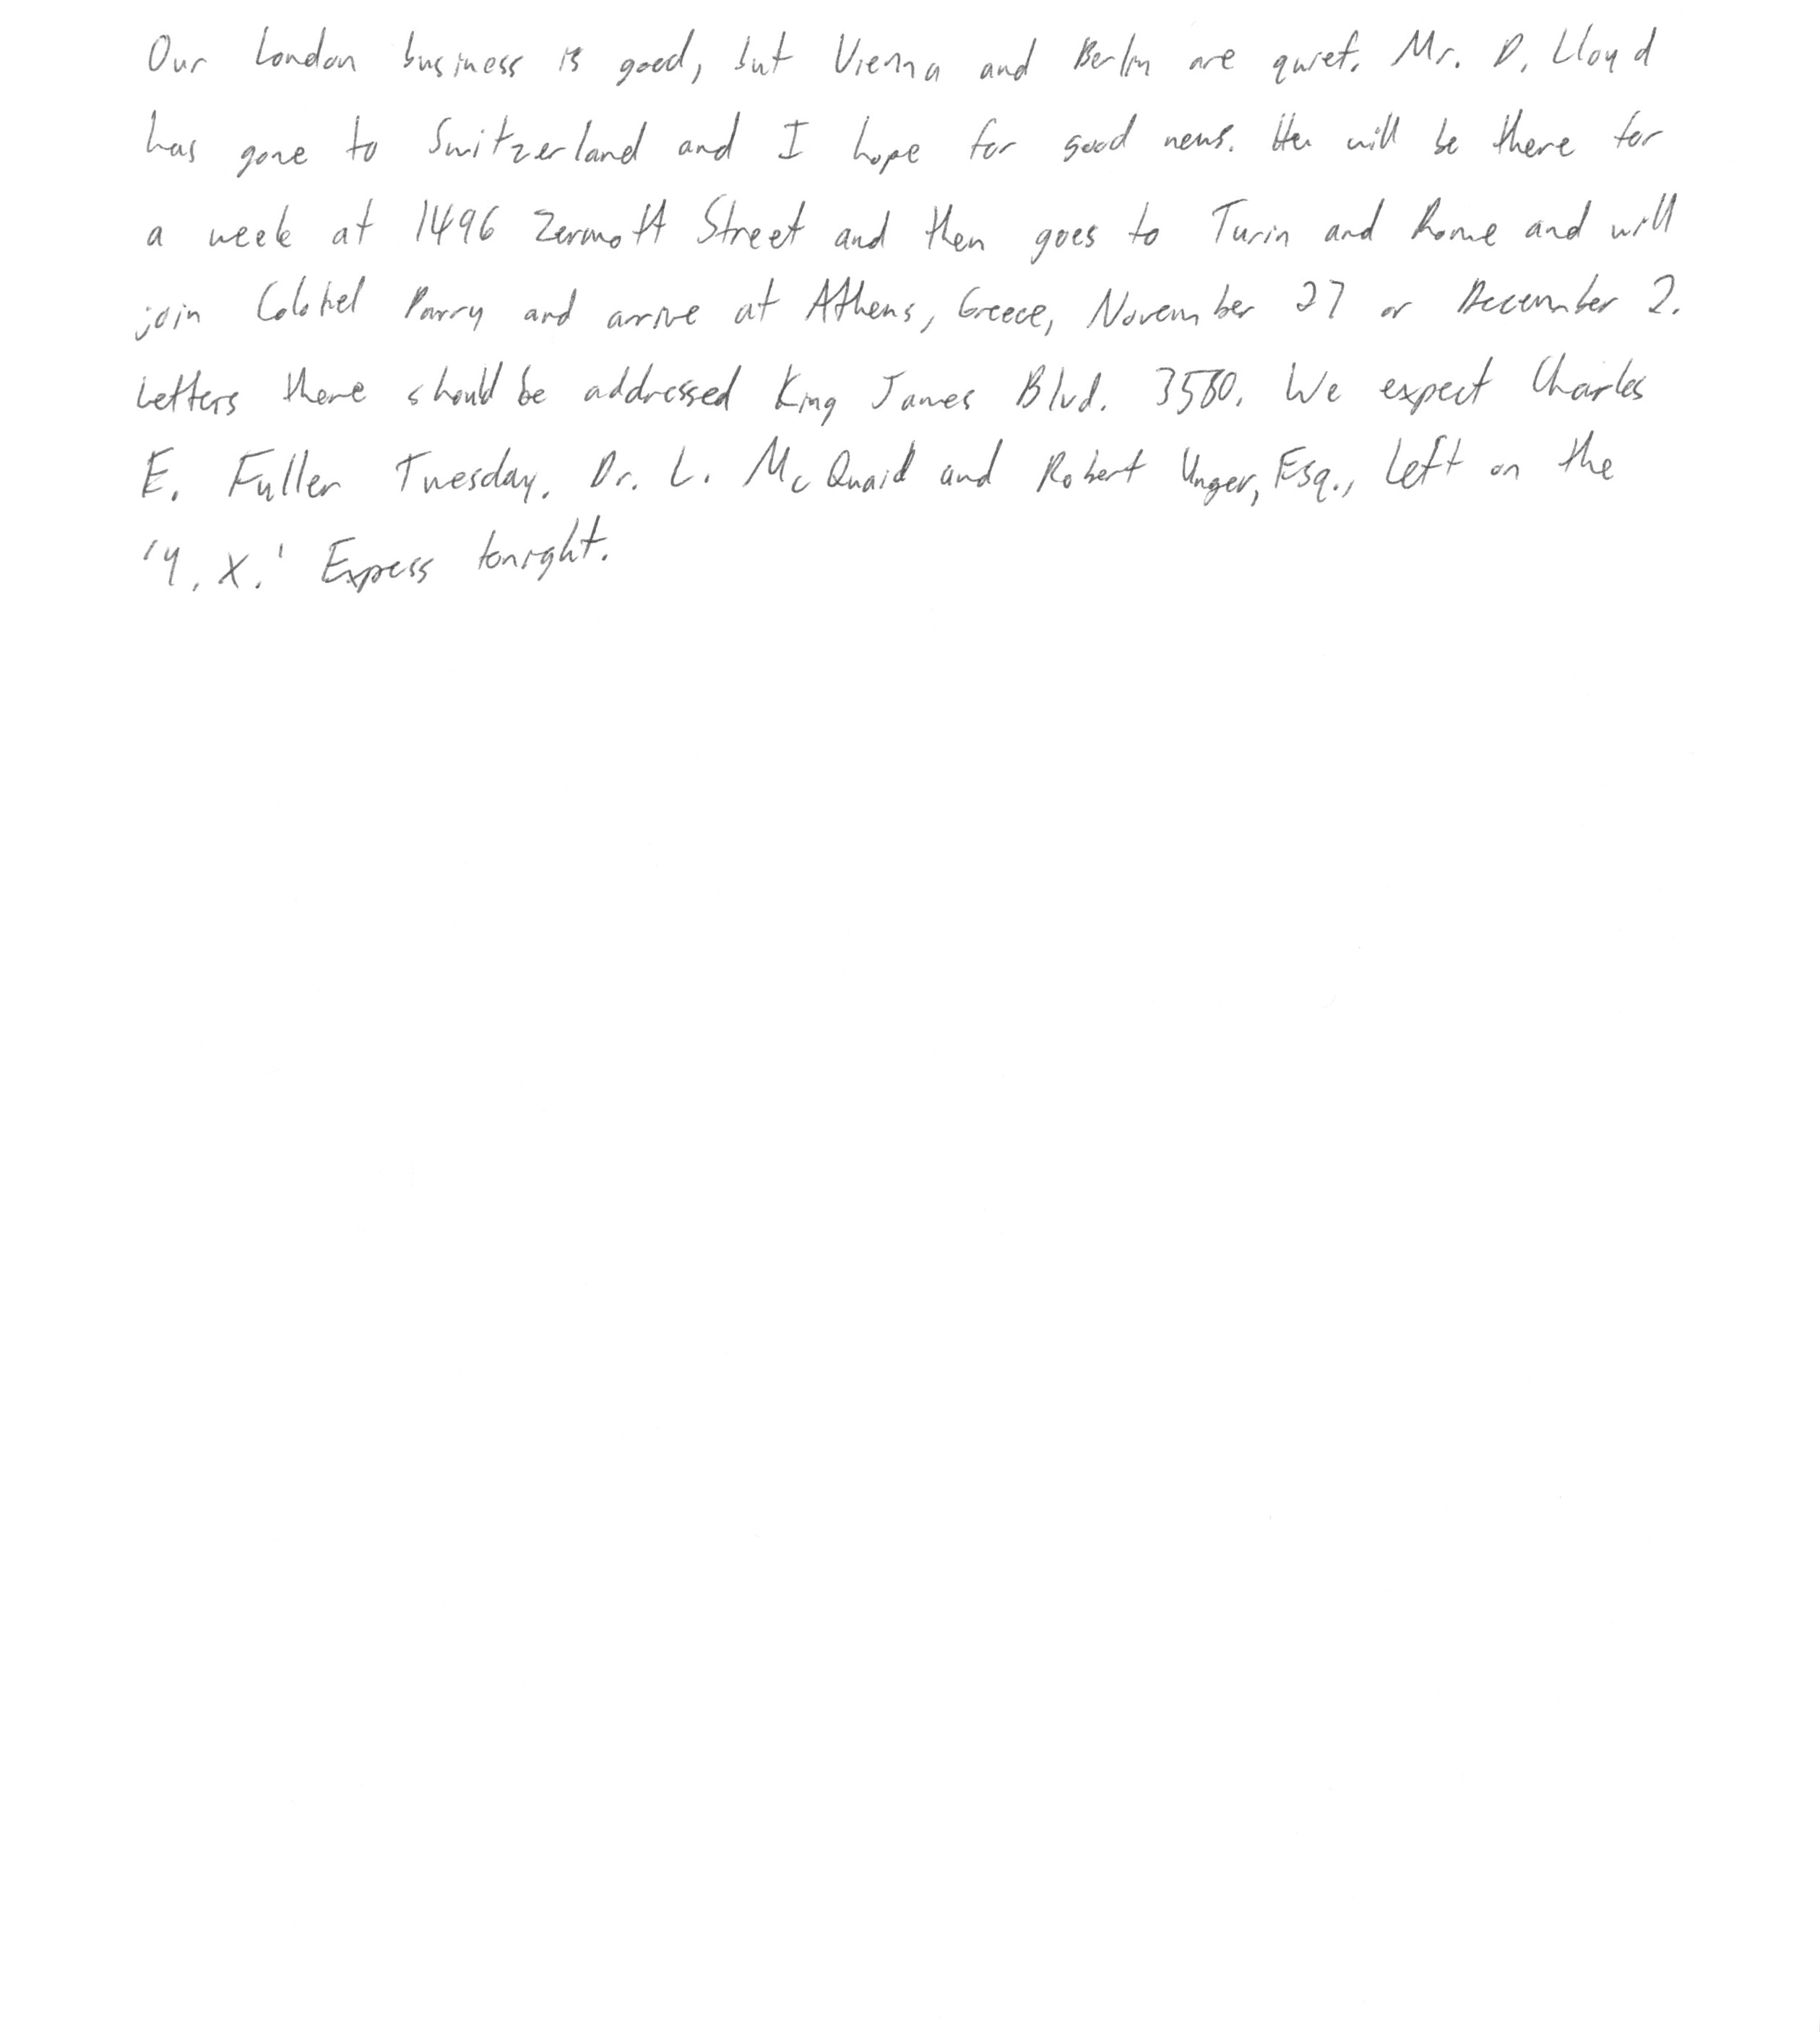 Our London business is good, but Vienna and Berlin are quiet. Mr. D. Lloyd
has gone to Switzerland and I hope for good news. He will be there for
a week at 1496 Zermott Street and then goes to Turin and Rome and will
join Colonel Parry and arrive at Athens, Greece, November 27 or December 2.
Letters there should be addressed King James Blvd. 3580. We expect Charles
E. Fuller Tuesday. Dr. L. McQuaid and Robert Unger, Esq., left on the
'Y. X.' Express tonight.